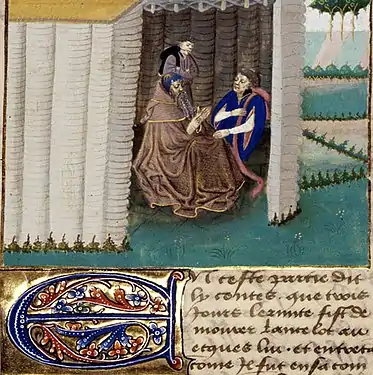 EN ceste partie dit
ly contes. que trois
Jours lermite fist de
mourer lancelot au
ecques lui · et entreta
come Il fut en sa com